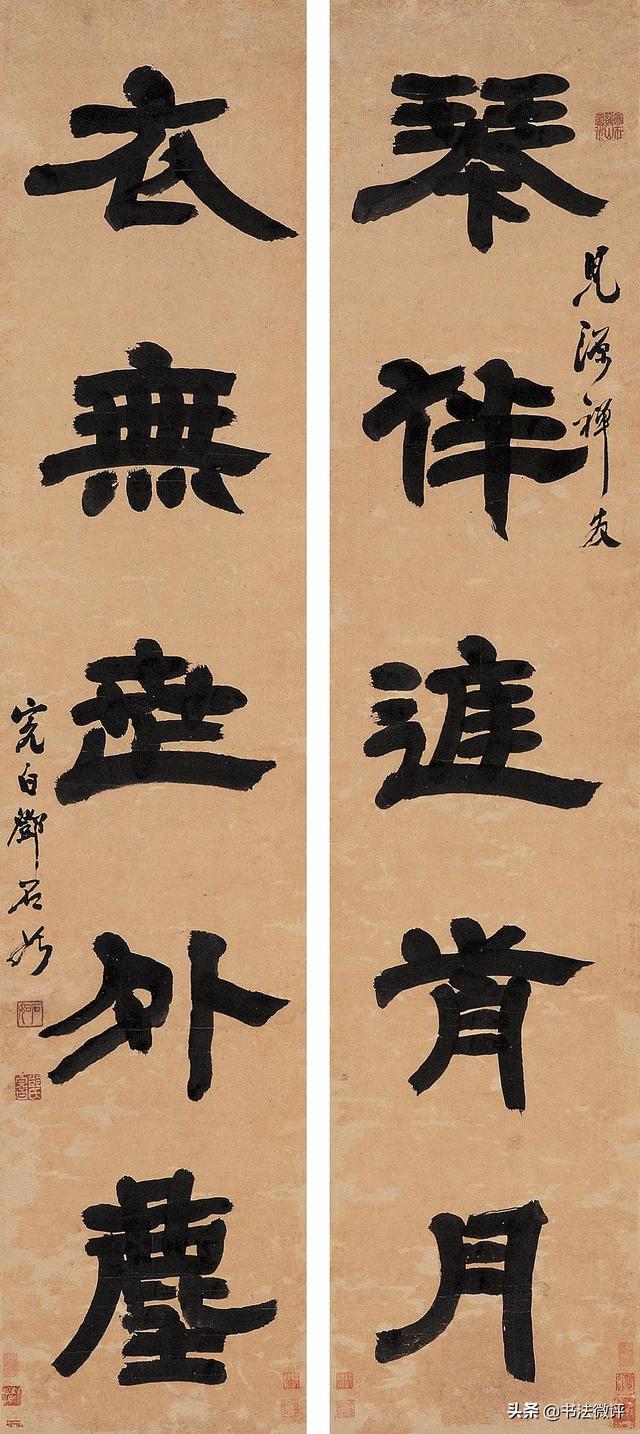 琴伴進宵月
見禪友
衣無世外塵
完白鄧石如
头条 @书法微评